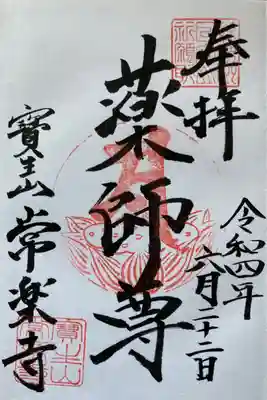 奉拝
令和四年
六月二十二日
薬師尊
寶生山
常楽寺